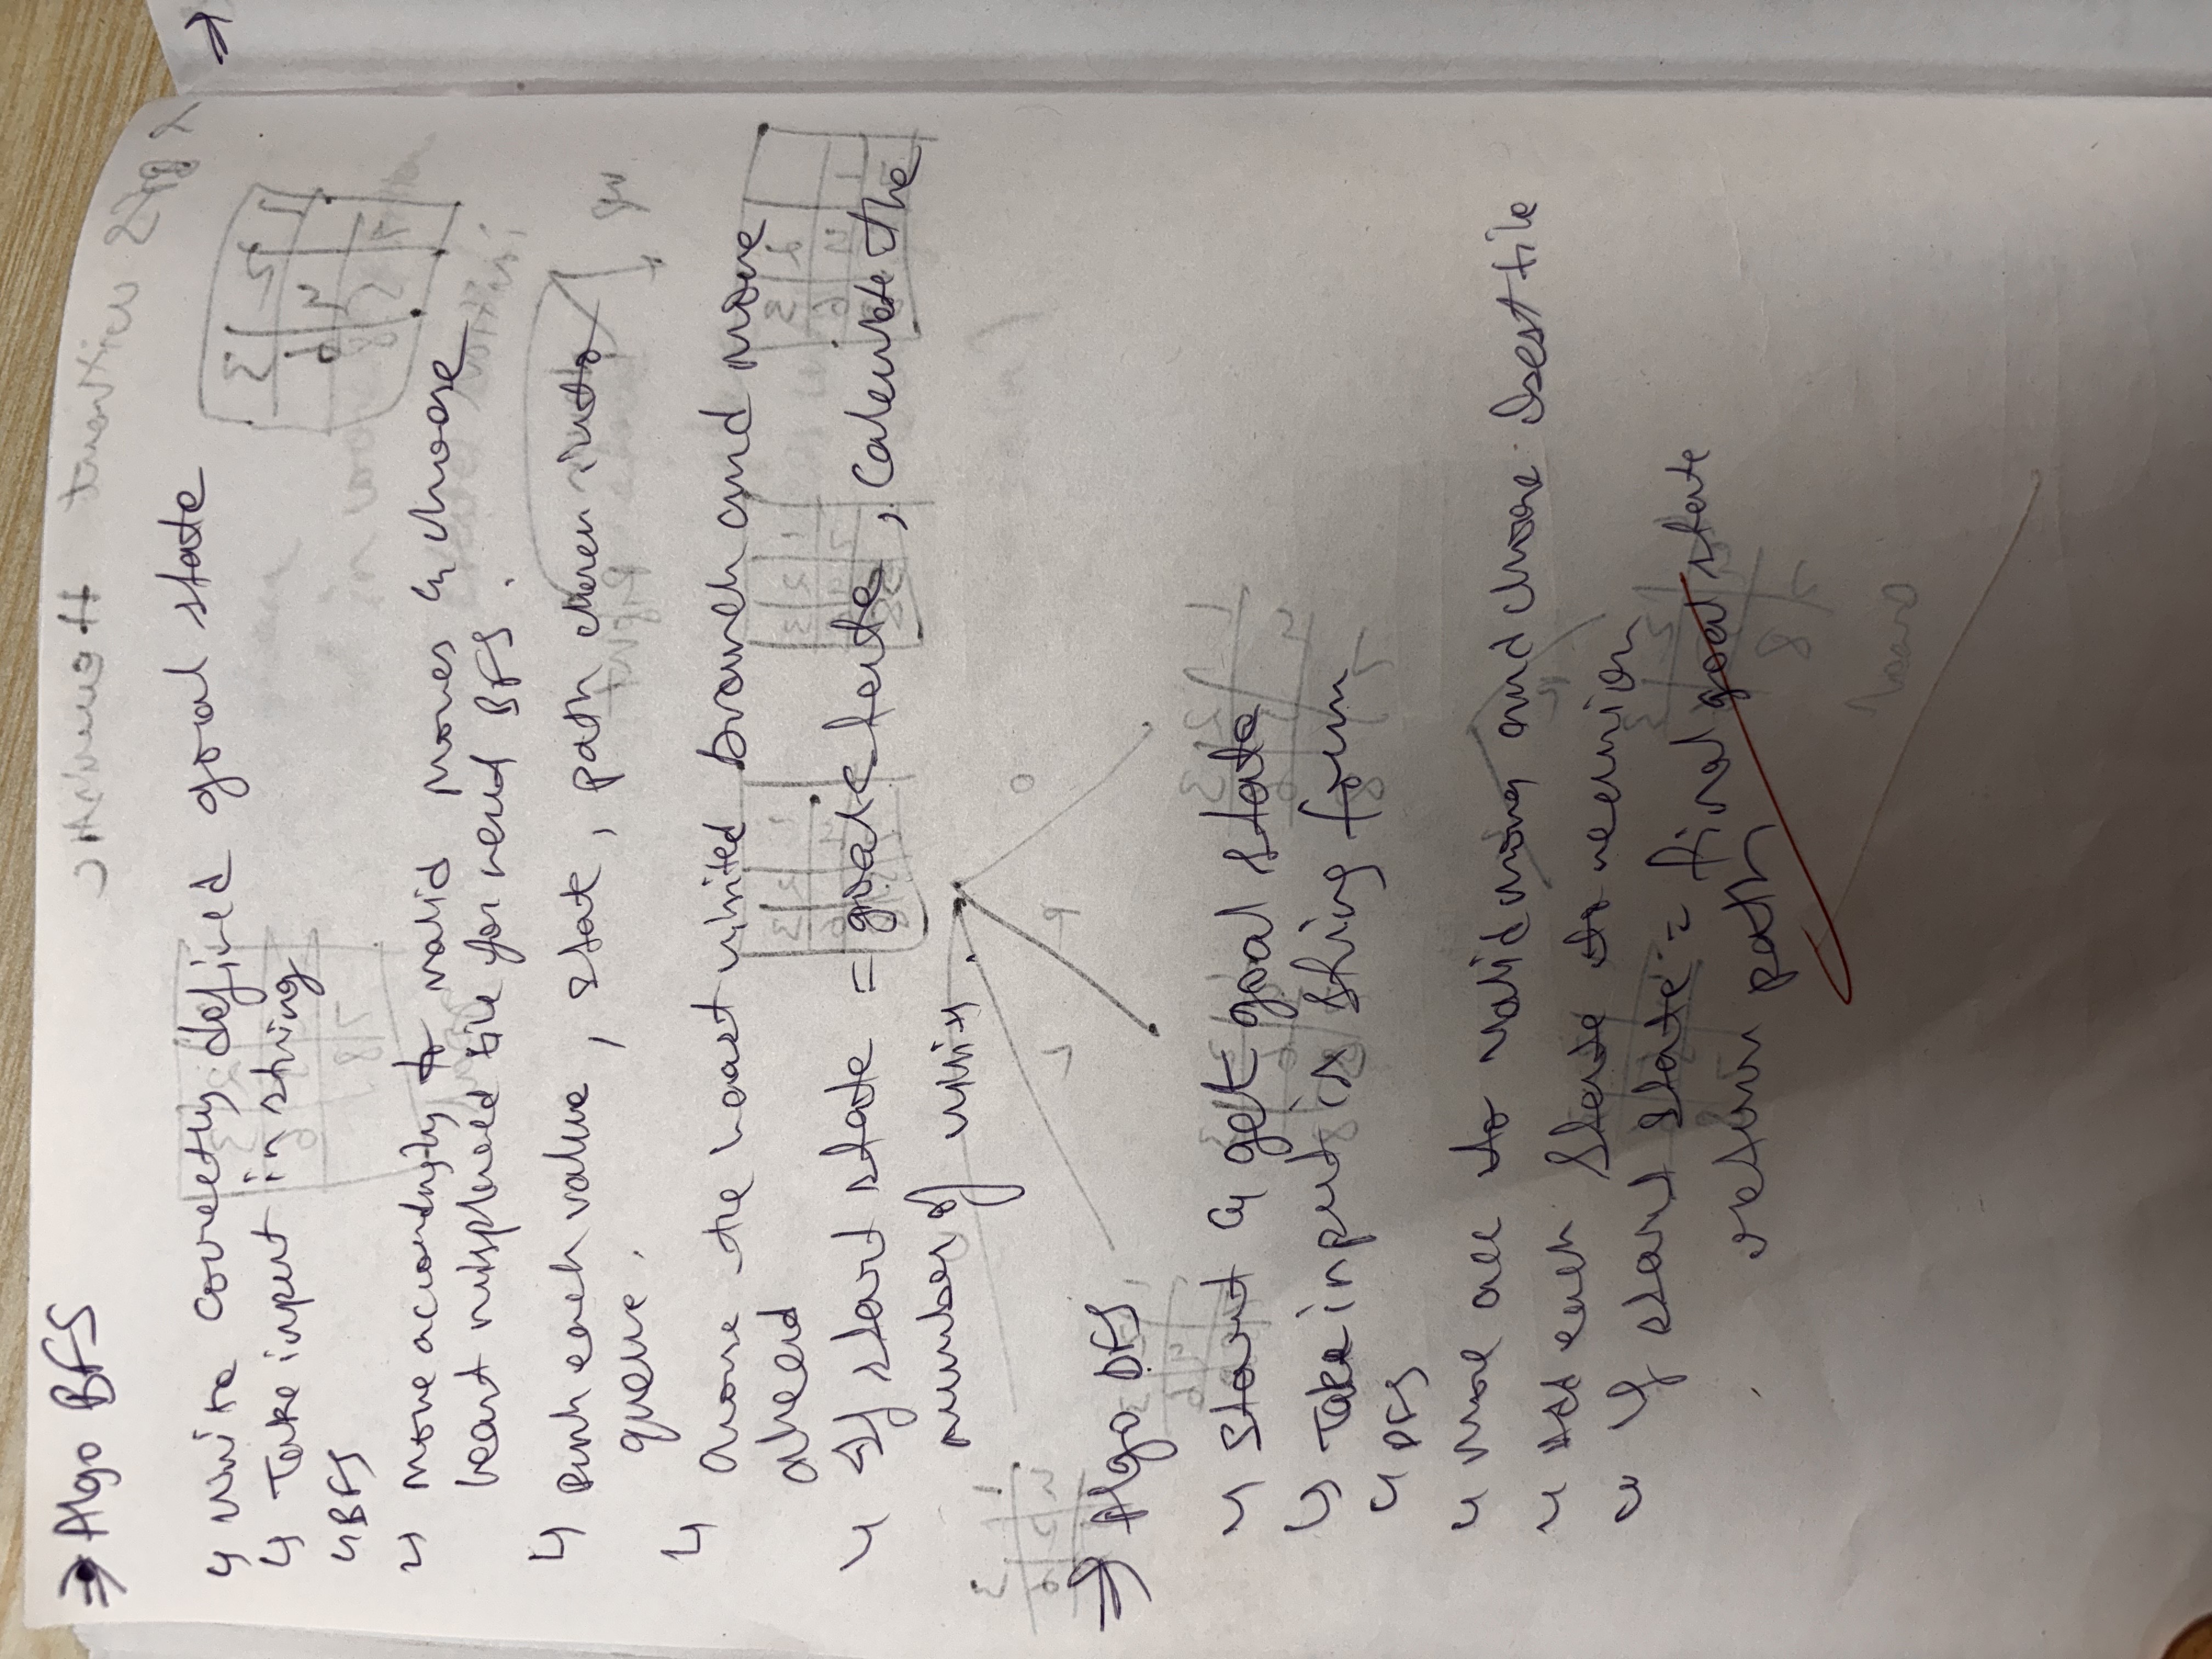 ⇒ Algo BFS
↳ Write correctly defined goal state
↳ Take input in string
↳ BFS
↳ Move accordingly to valid moves & choose
least misplaced tile for next BFS.
↳ Push each value, state, path chosen into
queue.
↳ Choose the least visited branch and move
ahead
↳ If start state = goal state, calculate the
number of visits.
⇒ Algo DFS
↳ Start & get goal state
↳ Take input in string form
↳ DFS
↳ Move acc to valid moves and choose best tile
↳ Add each state to
↳ If start state = final goal state
return path